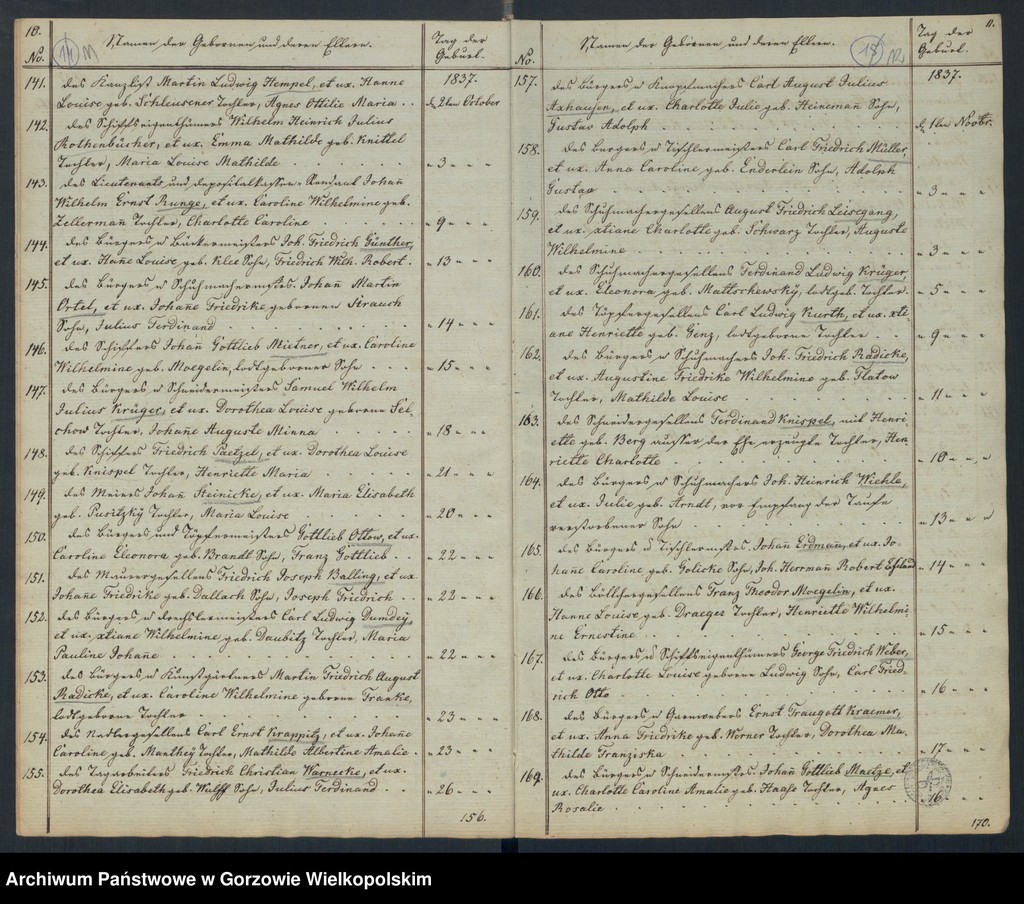 10.
No.
Namen der Gebornen und deren Eltern.
Tag der
Geburt.
1837.
141. des Kanzlist Martin Ludwig Hempel, et ux. Hanne
Louise geb. Schleusener Tochter, Agnes Ottilie Maria . . d. 2ten October
142. des Schiffseigenthümers Wilhelm Heinrich Julius
Rothenbücher, et ux. Emma Mathilde geb. Knittel
Tochter, Maria Louise Mathilde . . . . " 3 " " "
143. des Lieutenants und Depositalkassen-Rendant Johañ
Wilhelm Ernst Runge, et ux. Caroline Wilhelmine geb.
Zellermañ Tochter, Charlotte Caroline . . . . " 9 " " "
144. des Bürgers u Bäckermeisters Joh. Friedrich Günther,
et ux. Hañe Louise geb. Klee Sohn, Friedrich Wilh. Robert . " 13 " " "
145. des Bürgers u Schuhmachermstrs. Johañ Martin
Ortel, et ux. Johañe Friedrike gebornen Strauch
Sohn, Julius Ferdinand . . . . " 14 " " "
146. des Schiffers Johañ Gottlieb Mietner, et ux. Caroline
Wilhelmine geb. Moegelin, todtgeborner Sohn . . . " 15 " " "
147. des Bürgers u Schneidermeisters Samuel Wilhelm
Julius Krüger, et ux. Dorothea Louise geborne Sel-
chow Tochter, Johañe Auguste Minna . . . . " 18 " " "
148. des Schiffers Friedrich Paetzel, et ux. Dorothea Louise
geb. Knispel Tochter, Henriette Maria . . . . " 21 " " "
149. des Meiers Johañ Steinicke, et ux. Maria Elisabeth
geb. Pusitzky Tochter, Maria Louise . . . . " 20 " " "
150. des Bürgers und Töpfermeisters Gottlieb Ottow, et ux.
Caroline Eleonora geb. Brandt Sohn, Franz Gottlieb . . " 22 " " "
151. des Mauergesellens Friedrich Joseph Balling, et ux
Johañe Friedrike geb. Dallach Sohn, Joseph Friedrich . . " 22 " " "
152. des Bürgers u Drechslermeisters Carl Ludwig Dumdey,
et ux. Xtiane Wilhelmine geb. Daubitz Tochter, Maria
Pauline Johañe . . . . " 22 " " "
153. des Bürgers u Kunstgärtners Martin Friedrich August
Radicke, et ux. Caroline Wilhelmine geborne Franke,
todtgeborne Tochter . . . . " 23 " " "
154. des Nadlergesellens Carl Ernst Krappitz, et ux. Johañe
Caroline geb. Manthey Tochter, Mathilde Albertine Amalie . " 23 " " "
155. des Tagarbeiters Friedrich Christian Warnecke, et ux.
Dorothea Elisabeth geb. Wulff Sohn, Julius Ferdinand . . . " 26 " " "
156.
11.
No.
Namen der Gebornen und deren Eltern.
Tag der
Geburt.
1837.
157. des Bürgers u Knopfmachers Carl August Julius
Axhausen, et ux. Charlotte Julie geb. Heineman Sohn,
Gustav Adolph . . . . d. 1ten Novbr.
158. des Bürgers u Tischlermeisters Carl Friedrich Müller,
et ux. Anna Caroline geb. Enderlein Sohn, Adolph
Gustav . . . . " 3 " " "
159. des Schuhmachergesellens August Friedrich Leisegang,
et ux. Xtiane Charlotte geb. Schwarz Tochter, Auguste
Wilhelmine . . . . " 3 " " "
160. des Schuhmachergesellens Ferdinand Ludwig Krüger,
et ux. Eleonora, geb. Mattschewsky, todtgeb. Tochter. " 5 " " "
161. des Töpfergesellens Carl Ludwig Kurth, et ux. Xti-
ane Henriette geb. Genz, todtgeborne Tochter . " 9 " " "
162. des Bürgers u Schuhmachers Joh. Friedrich Radicke,
et ux. Augustine Friedrike Wilhelmine geb. Flatow
Tochter, Mathilde Louise . . . . " 11 " " "
163. des Schneidergesellens Ferdinand Knispel, mit Henri-
ette geb. Berg ausser der Ehe erzeugte Tochter, Hen
riette Charlotte . . . . " 10 " " "
164. des Bürgers u Schuhmachers Joh. Heinrich Wiehle,
et ux. Julie geb. Arndt, vor Empfang der Taufe
verstorbener Sohn . . . . " 13 " " "
165. des Bürgers u Tischlermstrs. Johañ Erdmañ, et ux. Jo-
hañe Caroline, geb. Golicke Sohn, Joh. Herman Robert " 14 " " "
166. des Böttchergesellens Franz Theodor Moegelin, et ux.
Hanne Louise geb. Draeger Tochter, Henriette Wilhelmi-
ne Ernestine . . . . " 15 " " "
167. des Bürgers u Schiffseigenthümers George Friedrich Weber,
et ux. Charlotte Louise geborne Ludwig Sohn, Carl Fried-
rich Otto . . . . " 16 " " "
168. des Bürgers u Garnwebers Ernst Traugott Kraemer,
et ux. Anna Friedrike geb. Wörner Tochter, Dorothea Ma-
thilde Franziska . . . . " 17 " " "
169. des Bürgers u Schneidermstrs. Johañ Gottlieb Maetze, et
ux. Charlotte Caroline Amalie geb. Haase Tochter, Agnes
Rosalie . . . . " 16 " " "
170.
Archiwum Państwowe w Gorzowie Wielkopolskim